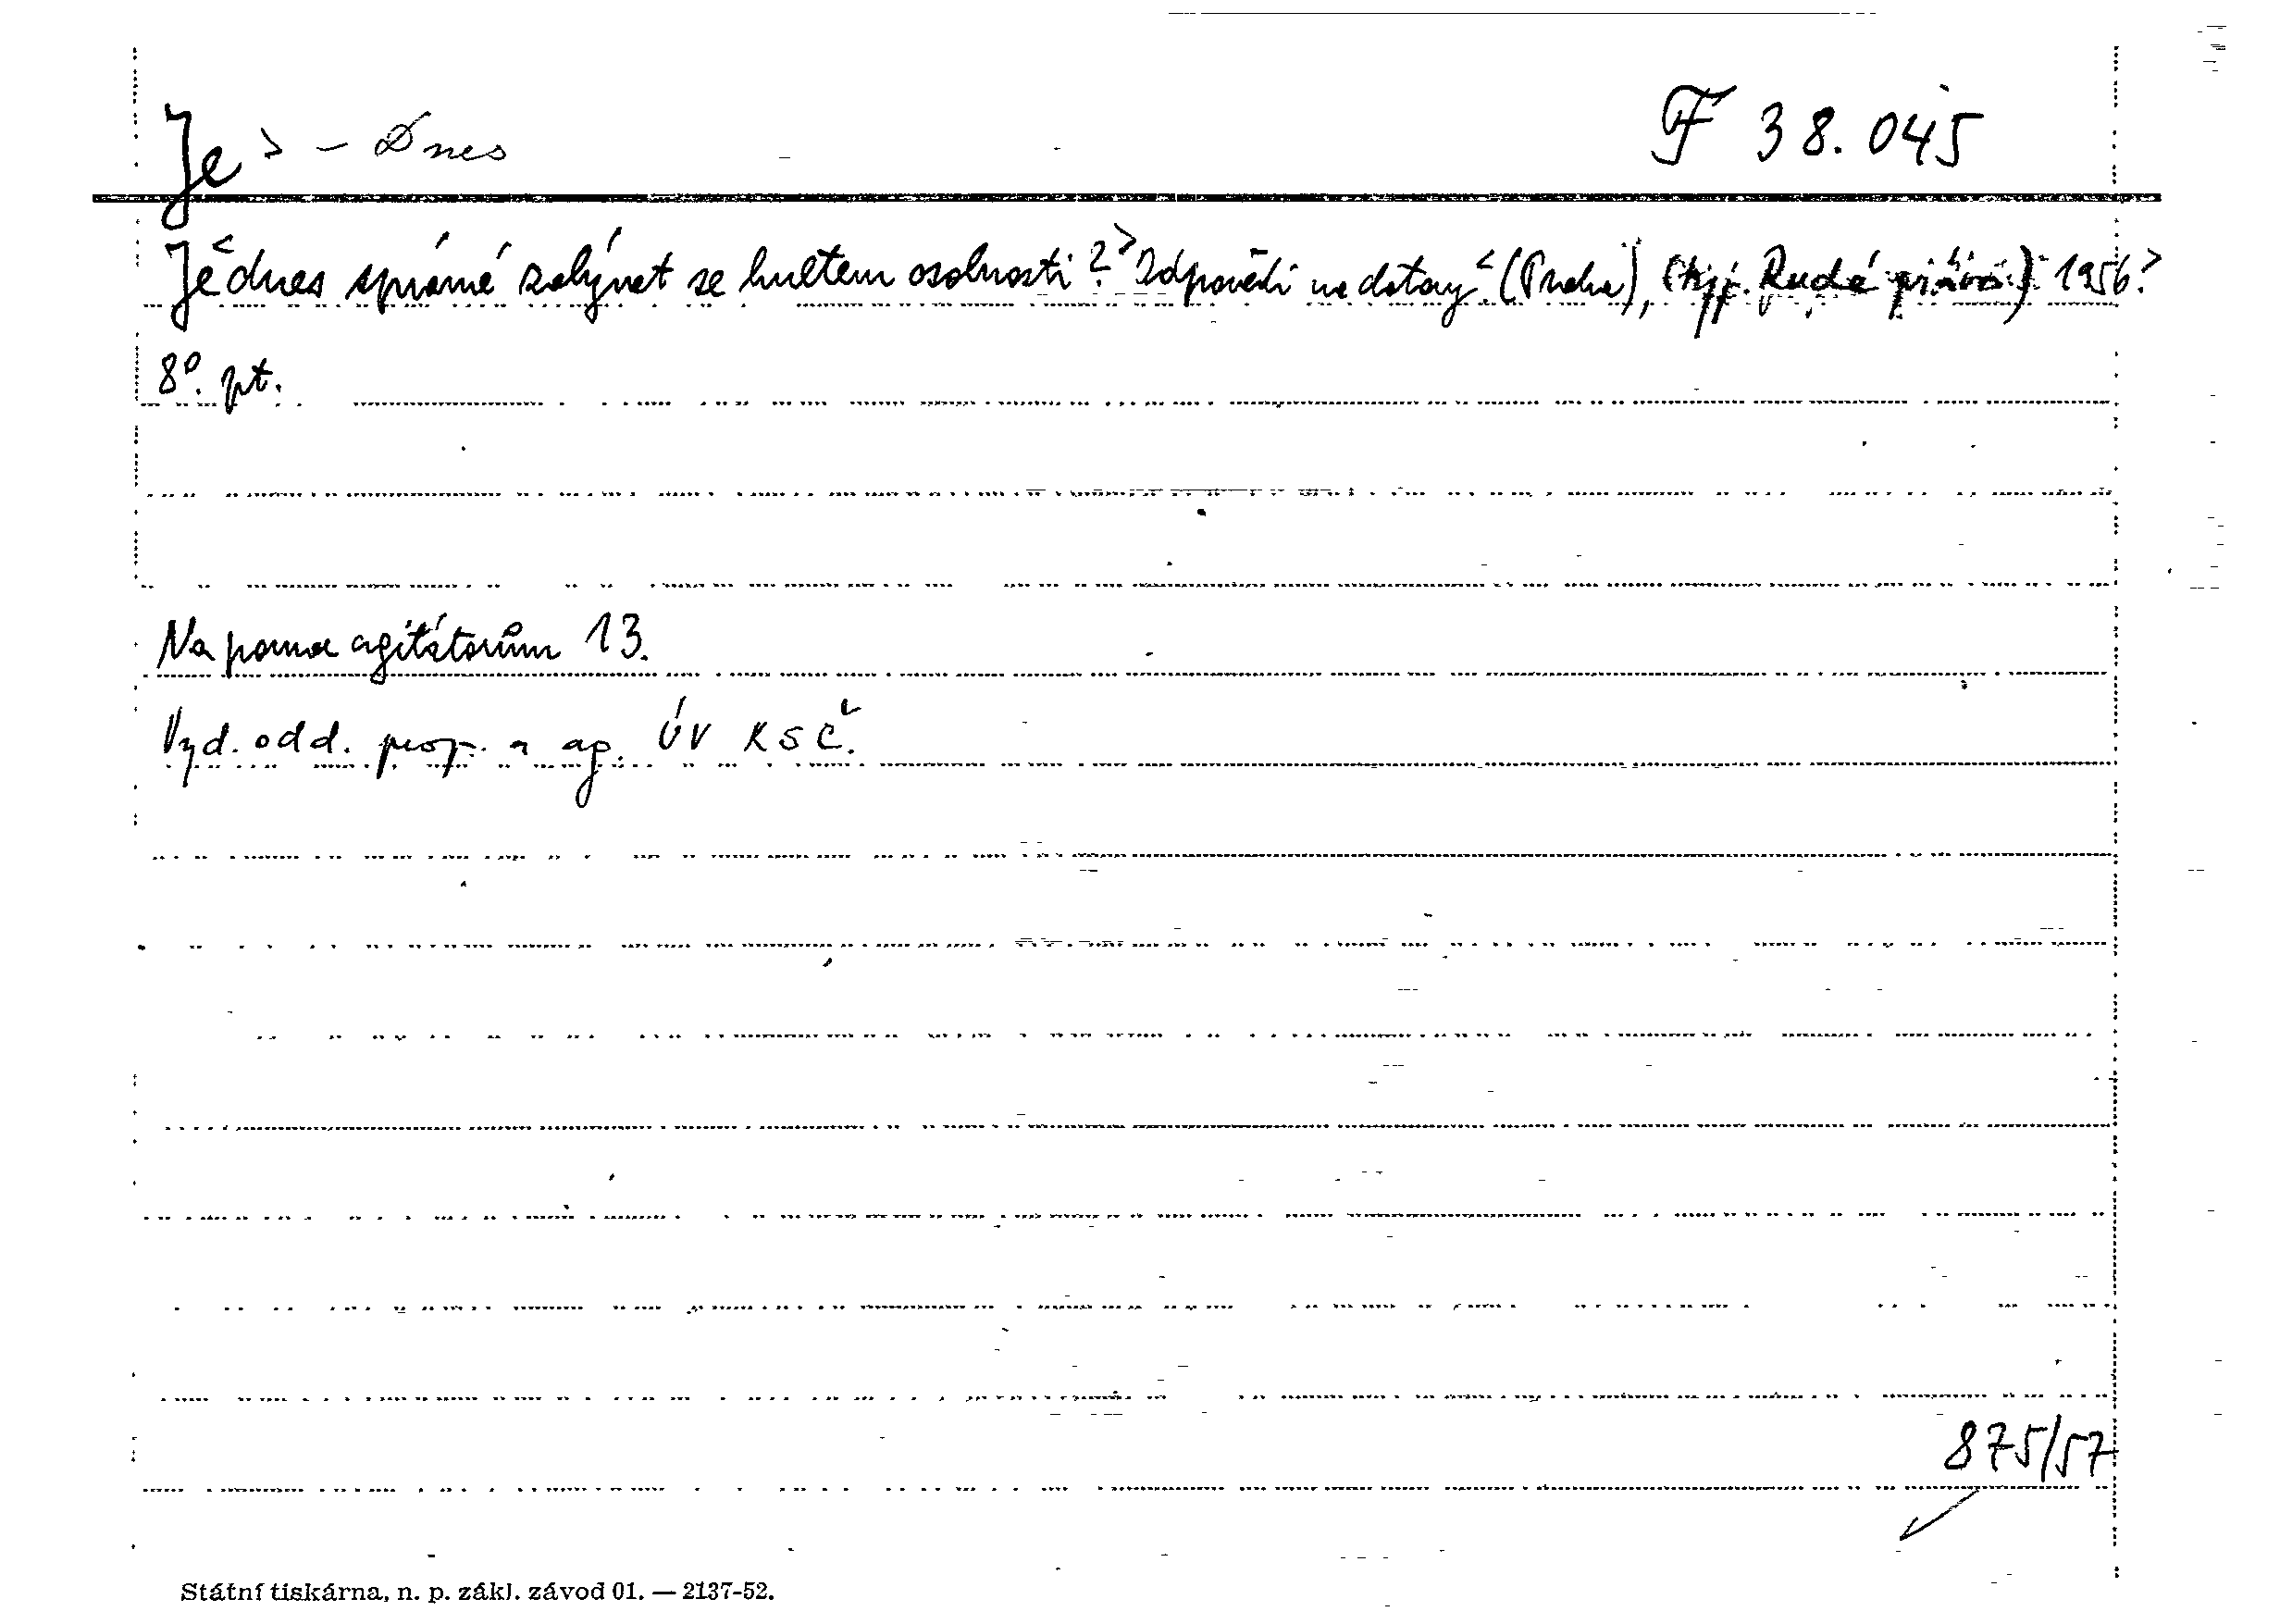 Je > - Dnes F 38.045
Je < dnes správné zabývat se kultem osobnosti? > Odpovědi na dotazy. < (Praha), (typ. Rudé právo) 1956. >
8°. pt.
Na pomoc agitátorům 13.
Vyd. odd. prop. a ag. ÚV KSČ.
875/57
Státní tiskárna, n. p. zákl. závod 01. — 2137-52.